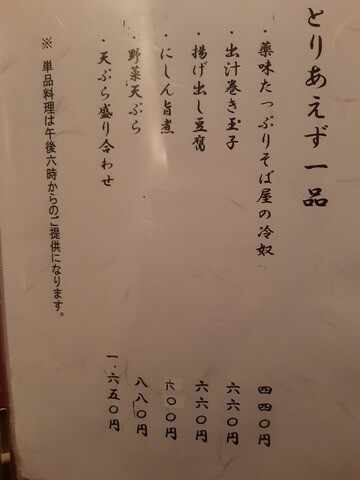 とりあえず一品
・薬味たっぷりそば屋の冷奴 四四〇円
・出汁巻き玉子 六六〇円
・揚げ出し豆腐 六六〇円
・にしん旨煮 六〇〇円
・野菜天ぷら 八八〇円
・天ぷら盛り合わせ 一、六五〇円
※ 単品料理は午後六時からのご提供になります。